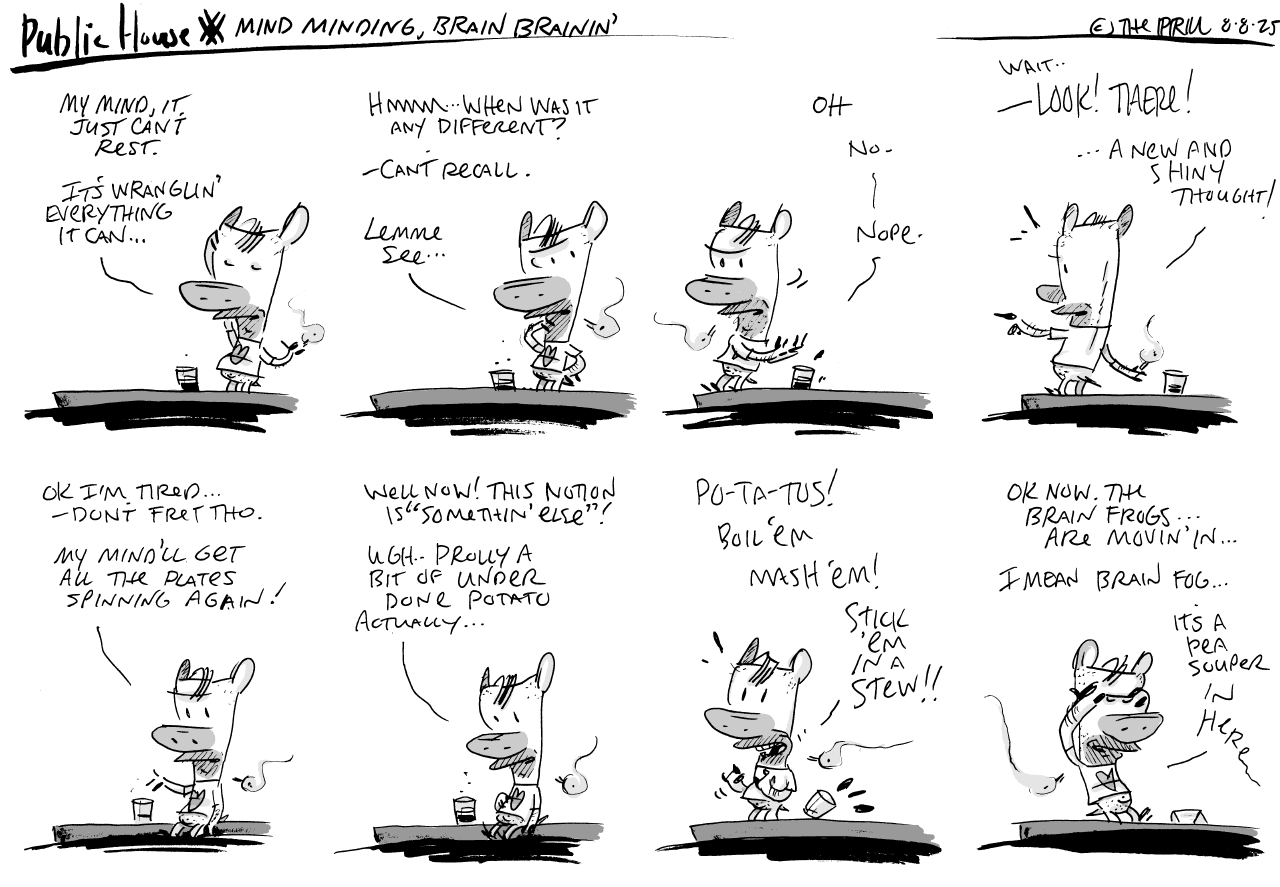 Public House MIND MINDING, BRAIN BRAININ'
© THE PIRILL 8·8·25
MY MIND, IT
JUST CAN'T
REST.
IT'S WRANGLIN'
EVERYTHING
IT CAN...
HMMM... WHEN WAS IT
ANY DIFFERENT?
-CAN'T RECALL.
LEMME
SEE...
OH
NO-
NOPE.
WAIT..
-LOOK! THERE!
...A NEW AND
SHINY
THOUGHT!
OK I'M TIRED...
-DON'T FRET THO.
MY MIND'LL GET
ALL THE PLATES
SPINNING AGAIN!
WELL NOW! THIS NOTION
IS "SOMETHIN' ELSE"!
UGH.. PROLLY A
BIT OF UNDER
DONE POTATO
ACTUALLY...
PO-TA-TUS!
BOIL 'EM
MASH 'EM!
STICK
'EM
IN A
STEW!!
OK NOW. THE
BRAIN FROGS...
ARE MOVIN' IN...
I MEAN BRAIN FOG...
IT'S A
PEA
SOUPER
IN
HERE